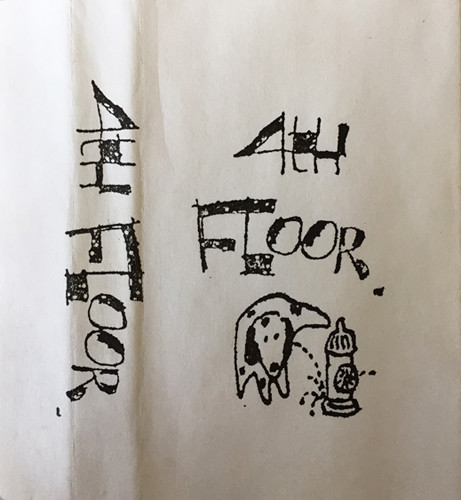 4TH FLOOR
4TH
FLOOR